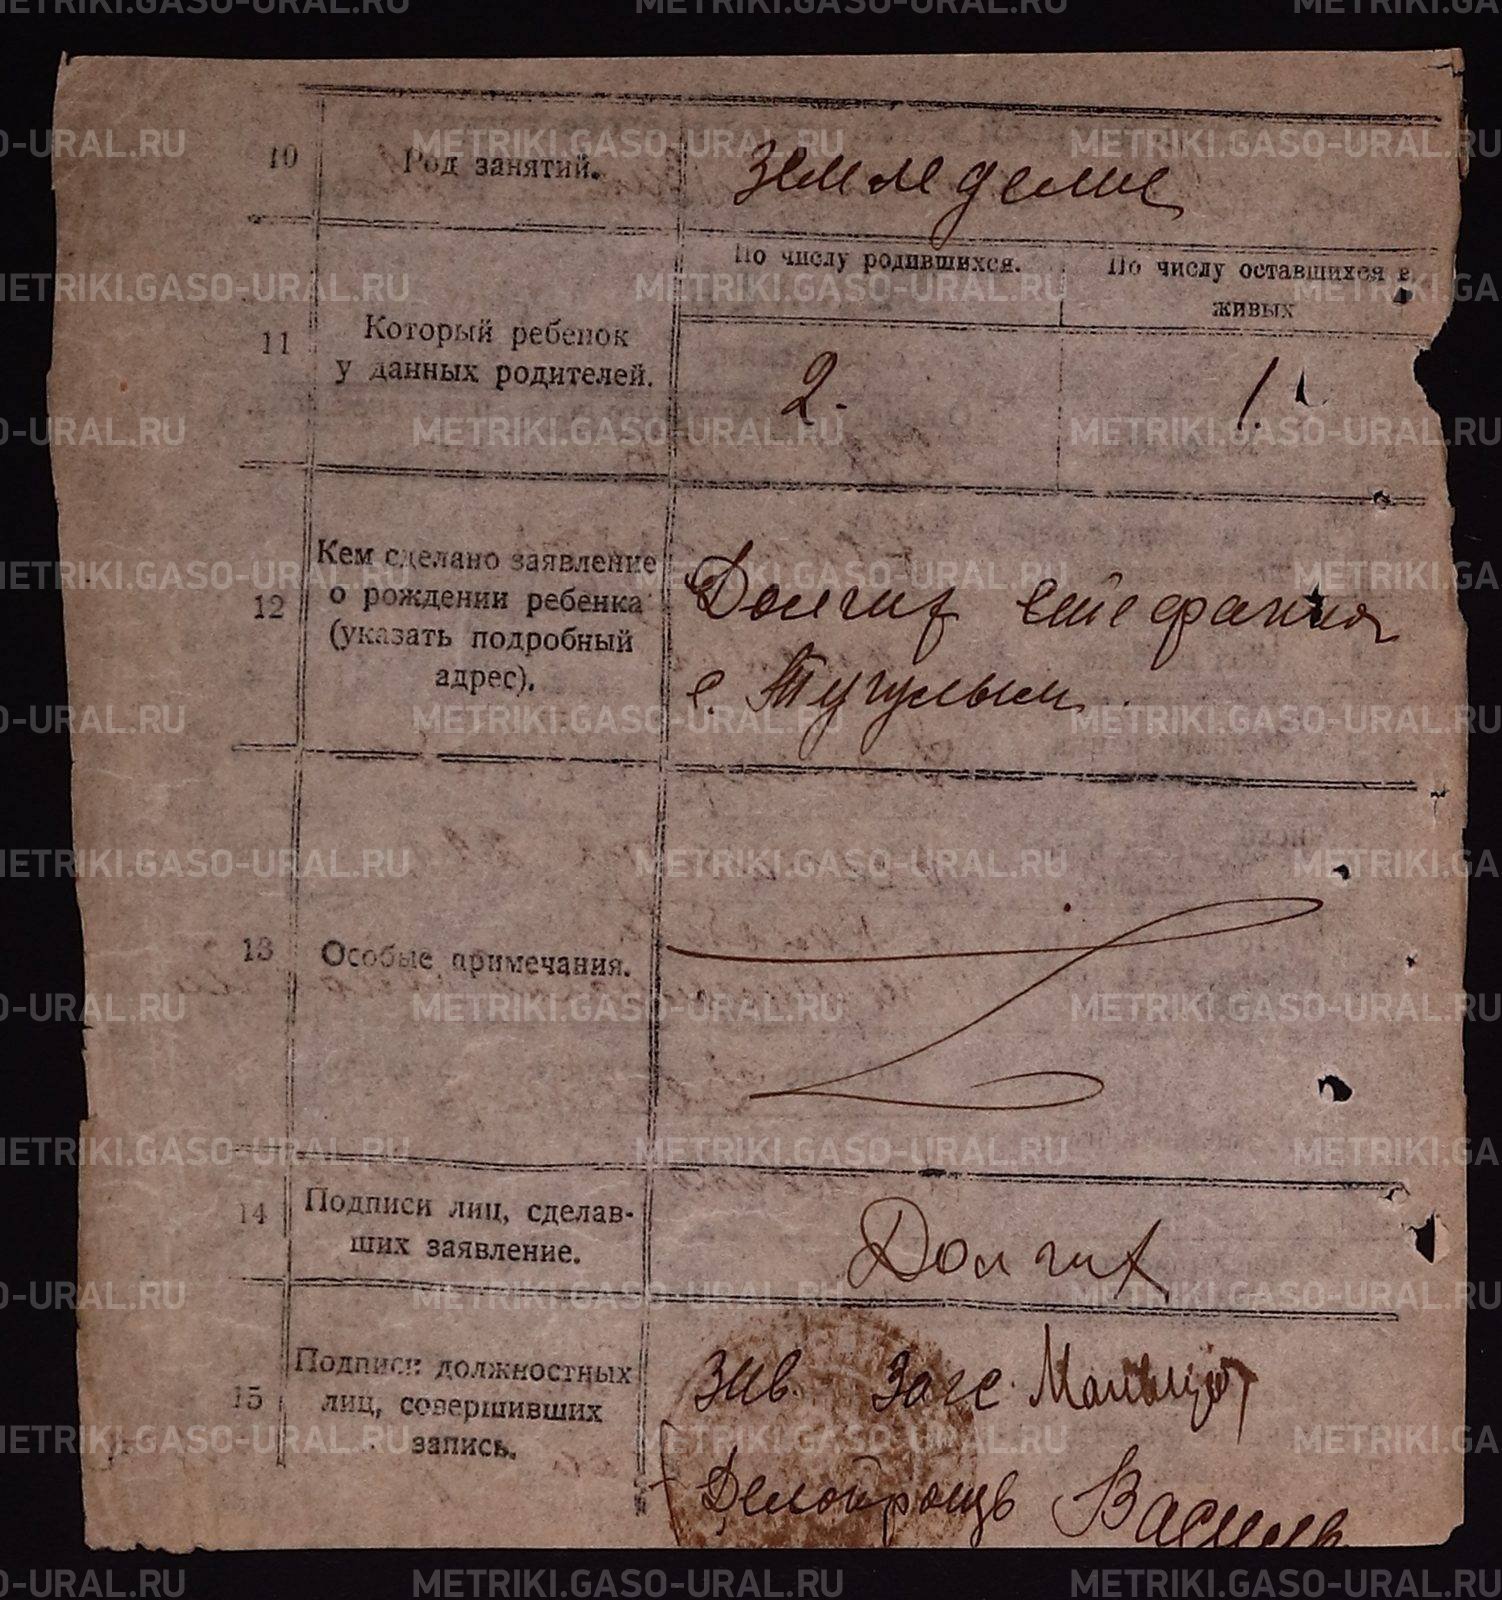 10 Род занятий. Земледелие
По числу родившихся. По числу оставшихся в
живых
11 Который ребенок
у данных родителей.
2. 1.
Кем сделано заявление
12 о рождении ребенка
(указать подробный
адрес).
Долгих Стефания
с. Тугулым
13 Особые примечания.
14 Подписи лиц, сделав-
ших заявление.
Долгих
15 Подписи должностных
лиц, совершивших
запись.
Зав. Загс.
METRIKI.GASO-URAL.RU